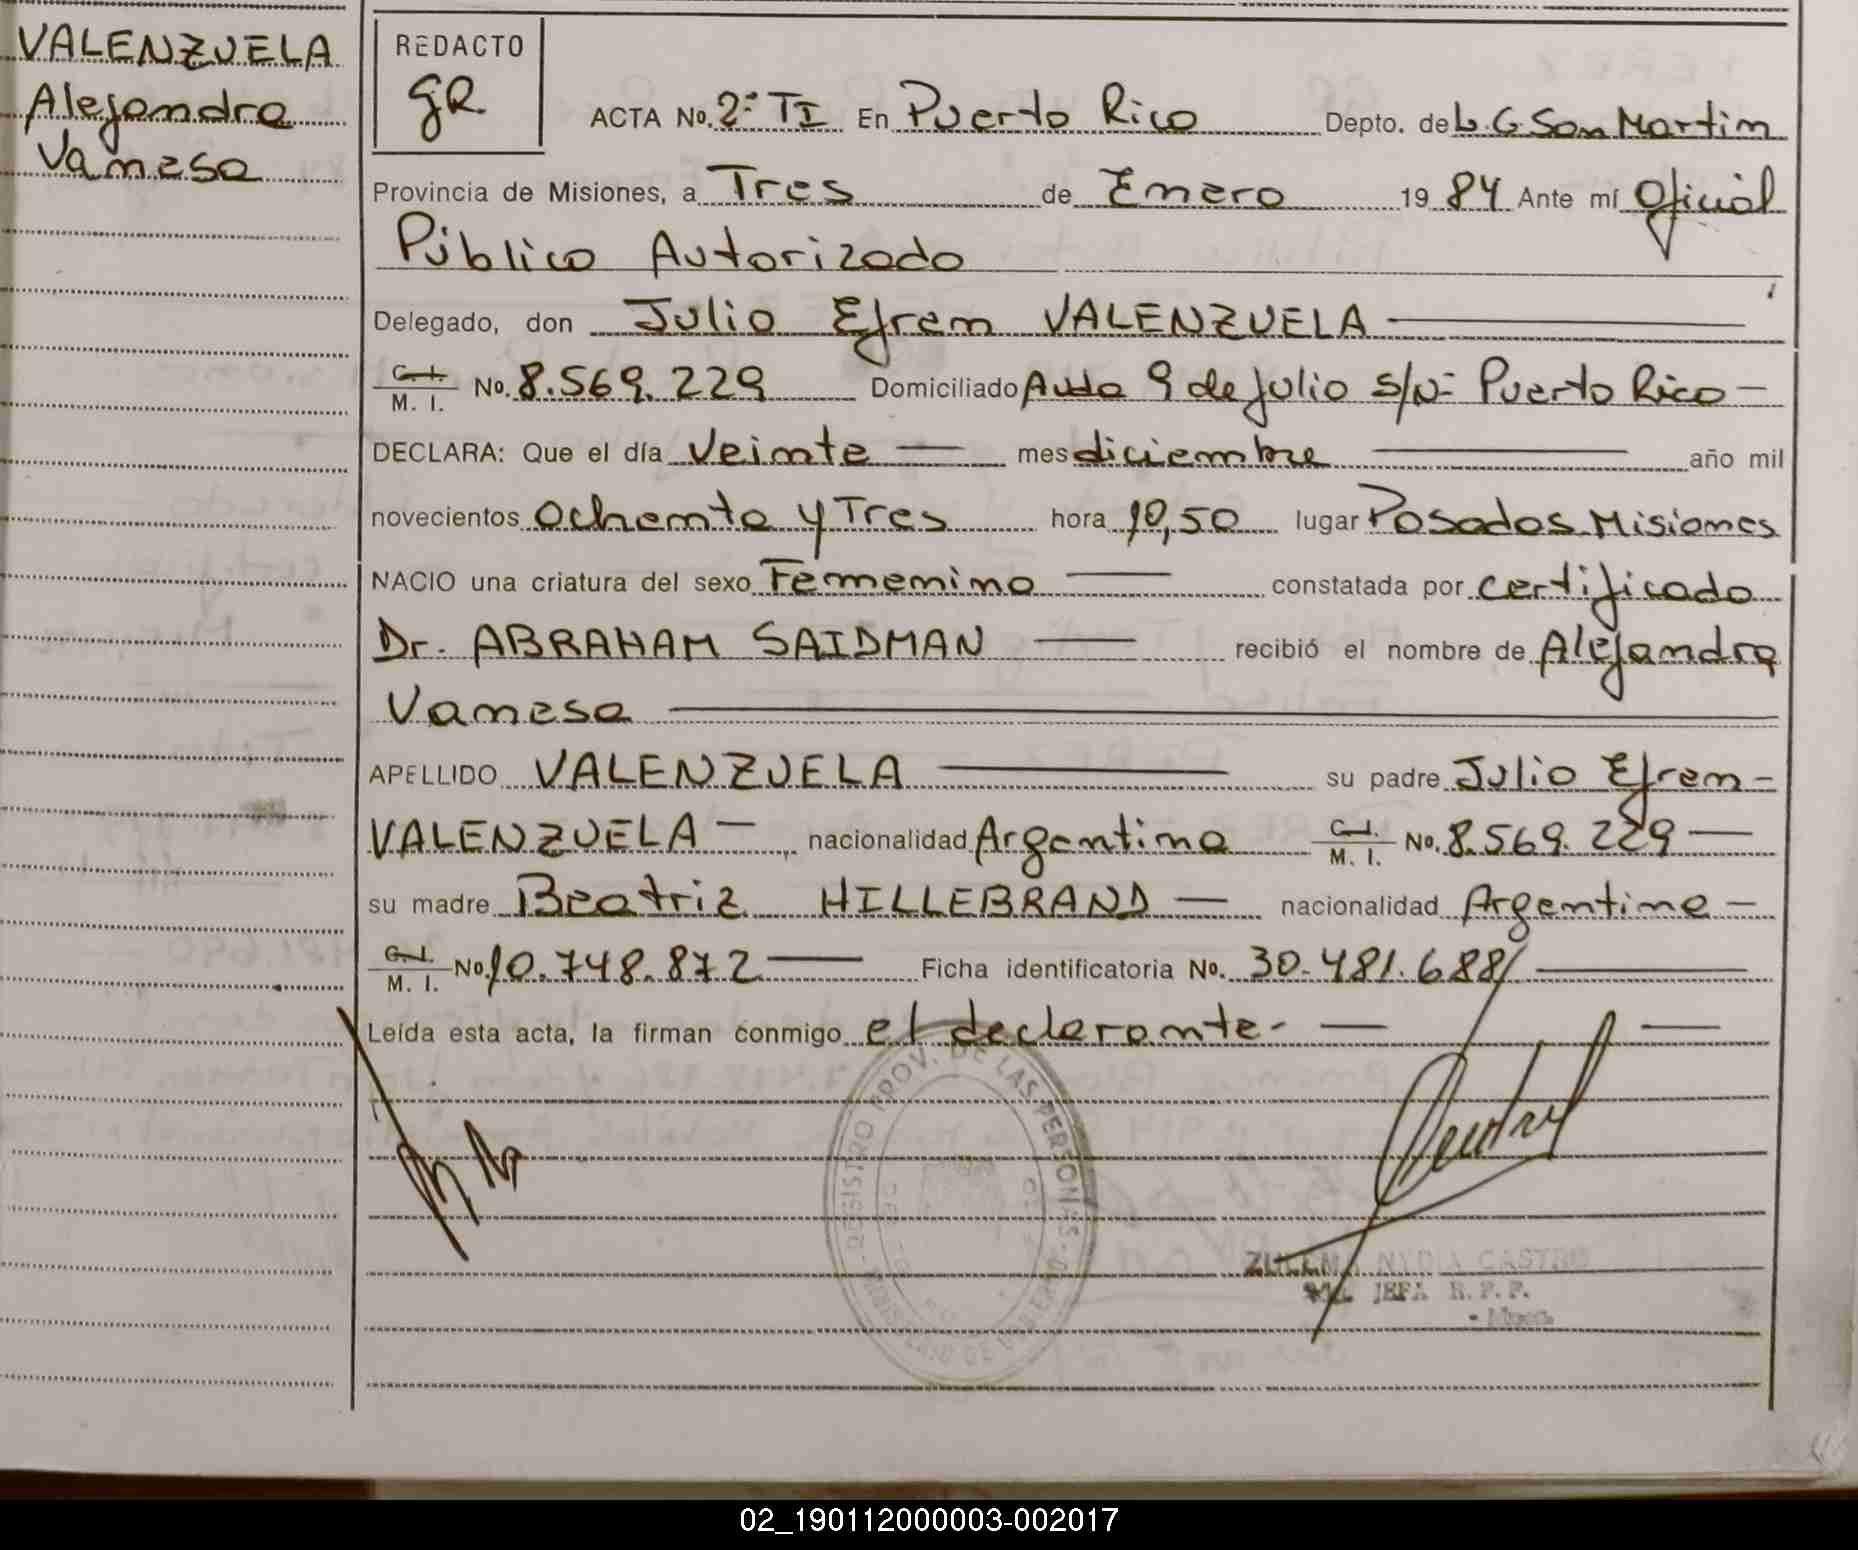 VALENZUELA
Alejandra
Vanesa
REDACTO
GR
ACTA No. 2º TI En Puerto Rico Depto. de L. G. San Martin
Provincia de Misiones, a Tres de Enero 1984 Ante mí Oficial
Público Autorizado
Delegado, don Julio Efrem VALENZUELA
C. I. / M. I. No. 8.569.229 Domiciliado Avda 9 de Julio s/Nº Puerto Rico —
DECLARA: Que el día Veinte — mes diciembre — año mil
novecientos ochenta y Tres hora 10,50 lugar Posadas Misiones
NACIO una criatura del sexo Femenino — constatada por certificado
Dr. ABRAHAM SAIDMAN — recibió el nombre de Alejandra
Vanesa —
APELLIDO VALENZUELA — su padre Julio Efrem —
VALENZUELA — nacionalidad Argentina C. I. / M. I. No. 8.569.229 —
su madre Beatriz HILLEBRAND — nacionalidad Argentina —
C. I. / M. I. No. 10.748.872 — Ficha identificatoria No. 30.481.688/ —
Leída esta acta, la firman conmigo el declarante. —
REGISTRO PROV. DE LAS PERSONAS
MINISTERIO DE GOBIERNO
ZULEMA NYDIA CASTRO
JEFA R. P. P.
02_190112000003-002017